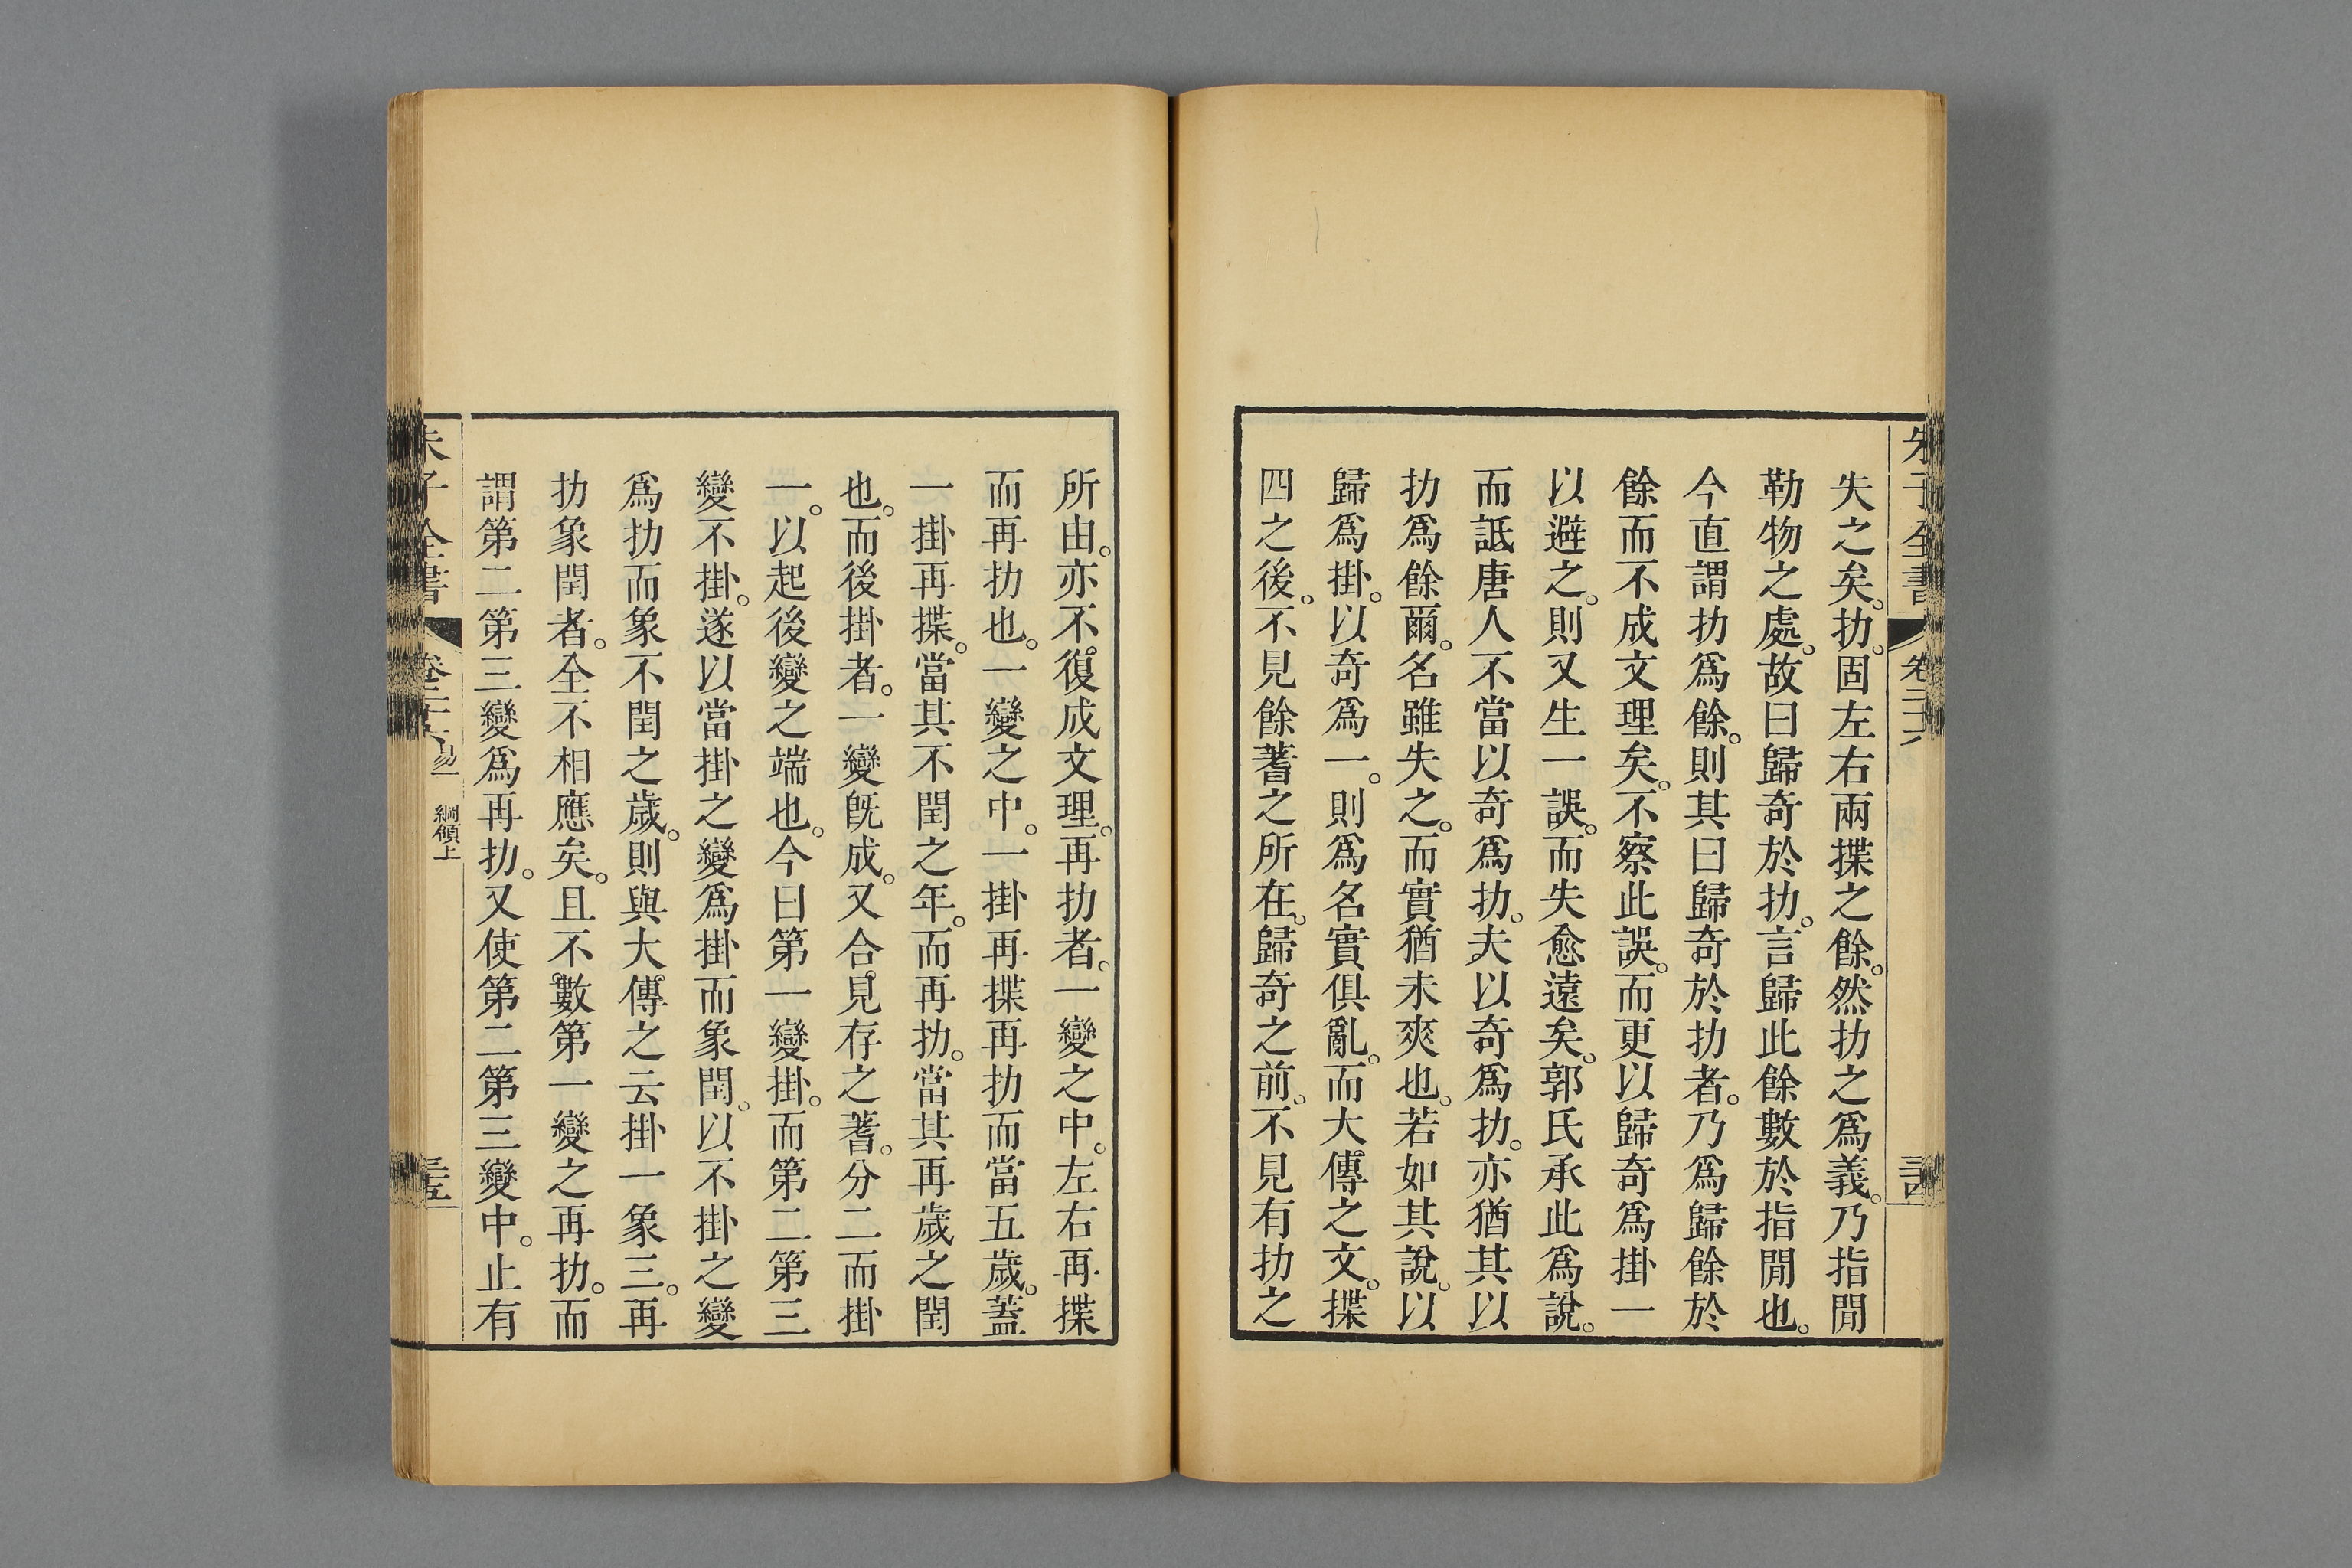 朱子全書 卷二十六 三十四
失之矣。扐。固左右兩揲之餘。然扐之爲義。乃指閒
勒物之處。故曰歸奇於扐。言歸此餘數於指閒也。
今直謂扐爲餘。則其曰歸奇於扐者。乃爲歸餘於
餘而不成文理矣。不察此誤。而更以歸奇爲掛一
以避之。則又生一誤。而失愈遠矣。郭氏承此爲說。
而詆唐人不當以奇爲扐。夫以奇爲扐。亦猶其以
扐爲餘爾。名雖失之。而實猶未爽也。若如其說。以
歸爲掛。以奇爲一。則爲名實俱亂。而大傳之文。揲
四之後。不見餘蓍之所在。歸奇之前。不見有扐之
所由。亦不復成文理。再扐者。一變之中。左右再揲
而再扐也。一變之中。一掛再揲再扐而當五歲。蓋
一掛再揲。當其不閏之年。而再扐。當其再歲之閏
也。而後掛者。一變旣成。又合見存之蓍。分二而掛
一。以起後變之端也。今曰第一變掛。而第二第三
變不掛。遂以當掛之變爲掛而象閏。以不掛之變
爲扐而象不閏之歲。則與大傳之云掛一象三。再
扐象閏者。全不相應矣。且不數第一變之再扐。而
謂第二第三變爲再扐。又使第二第三變中。止有
朱子全書 卷二十六 易一 綱領上 三十五